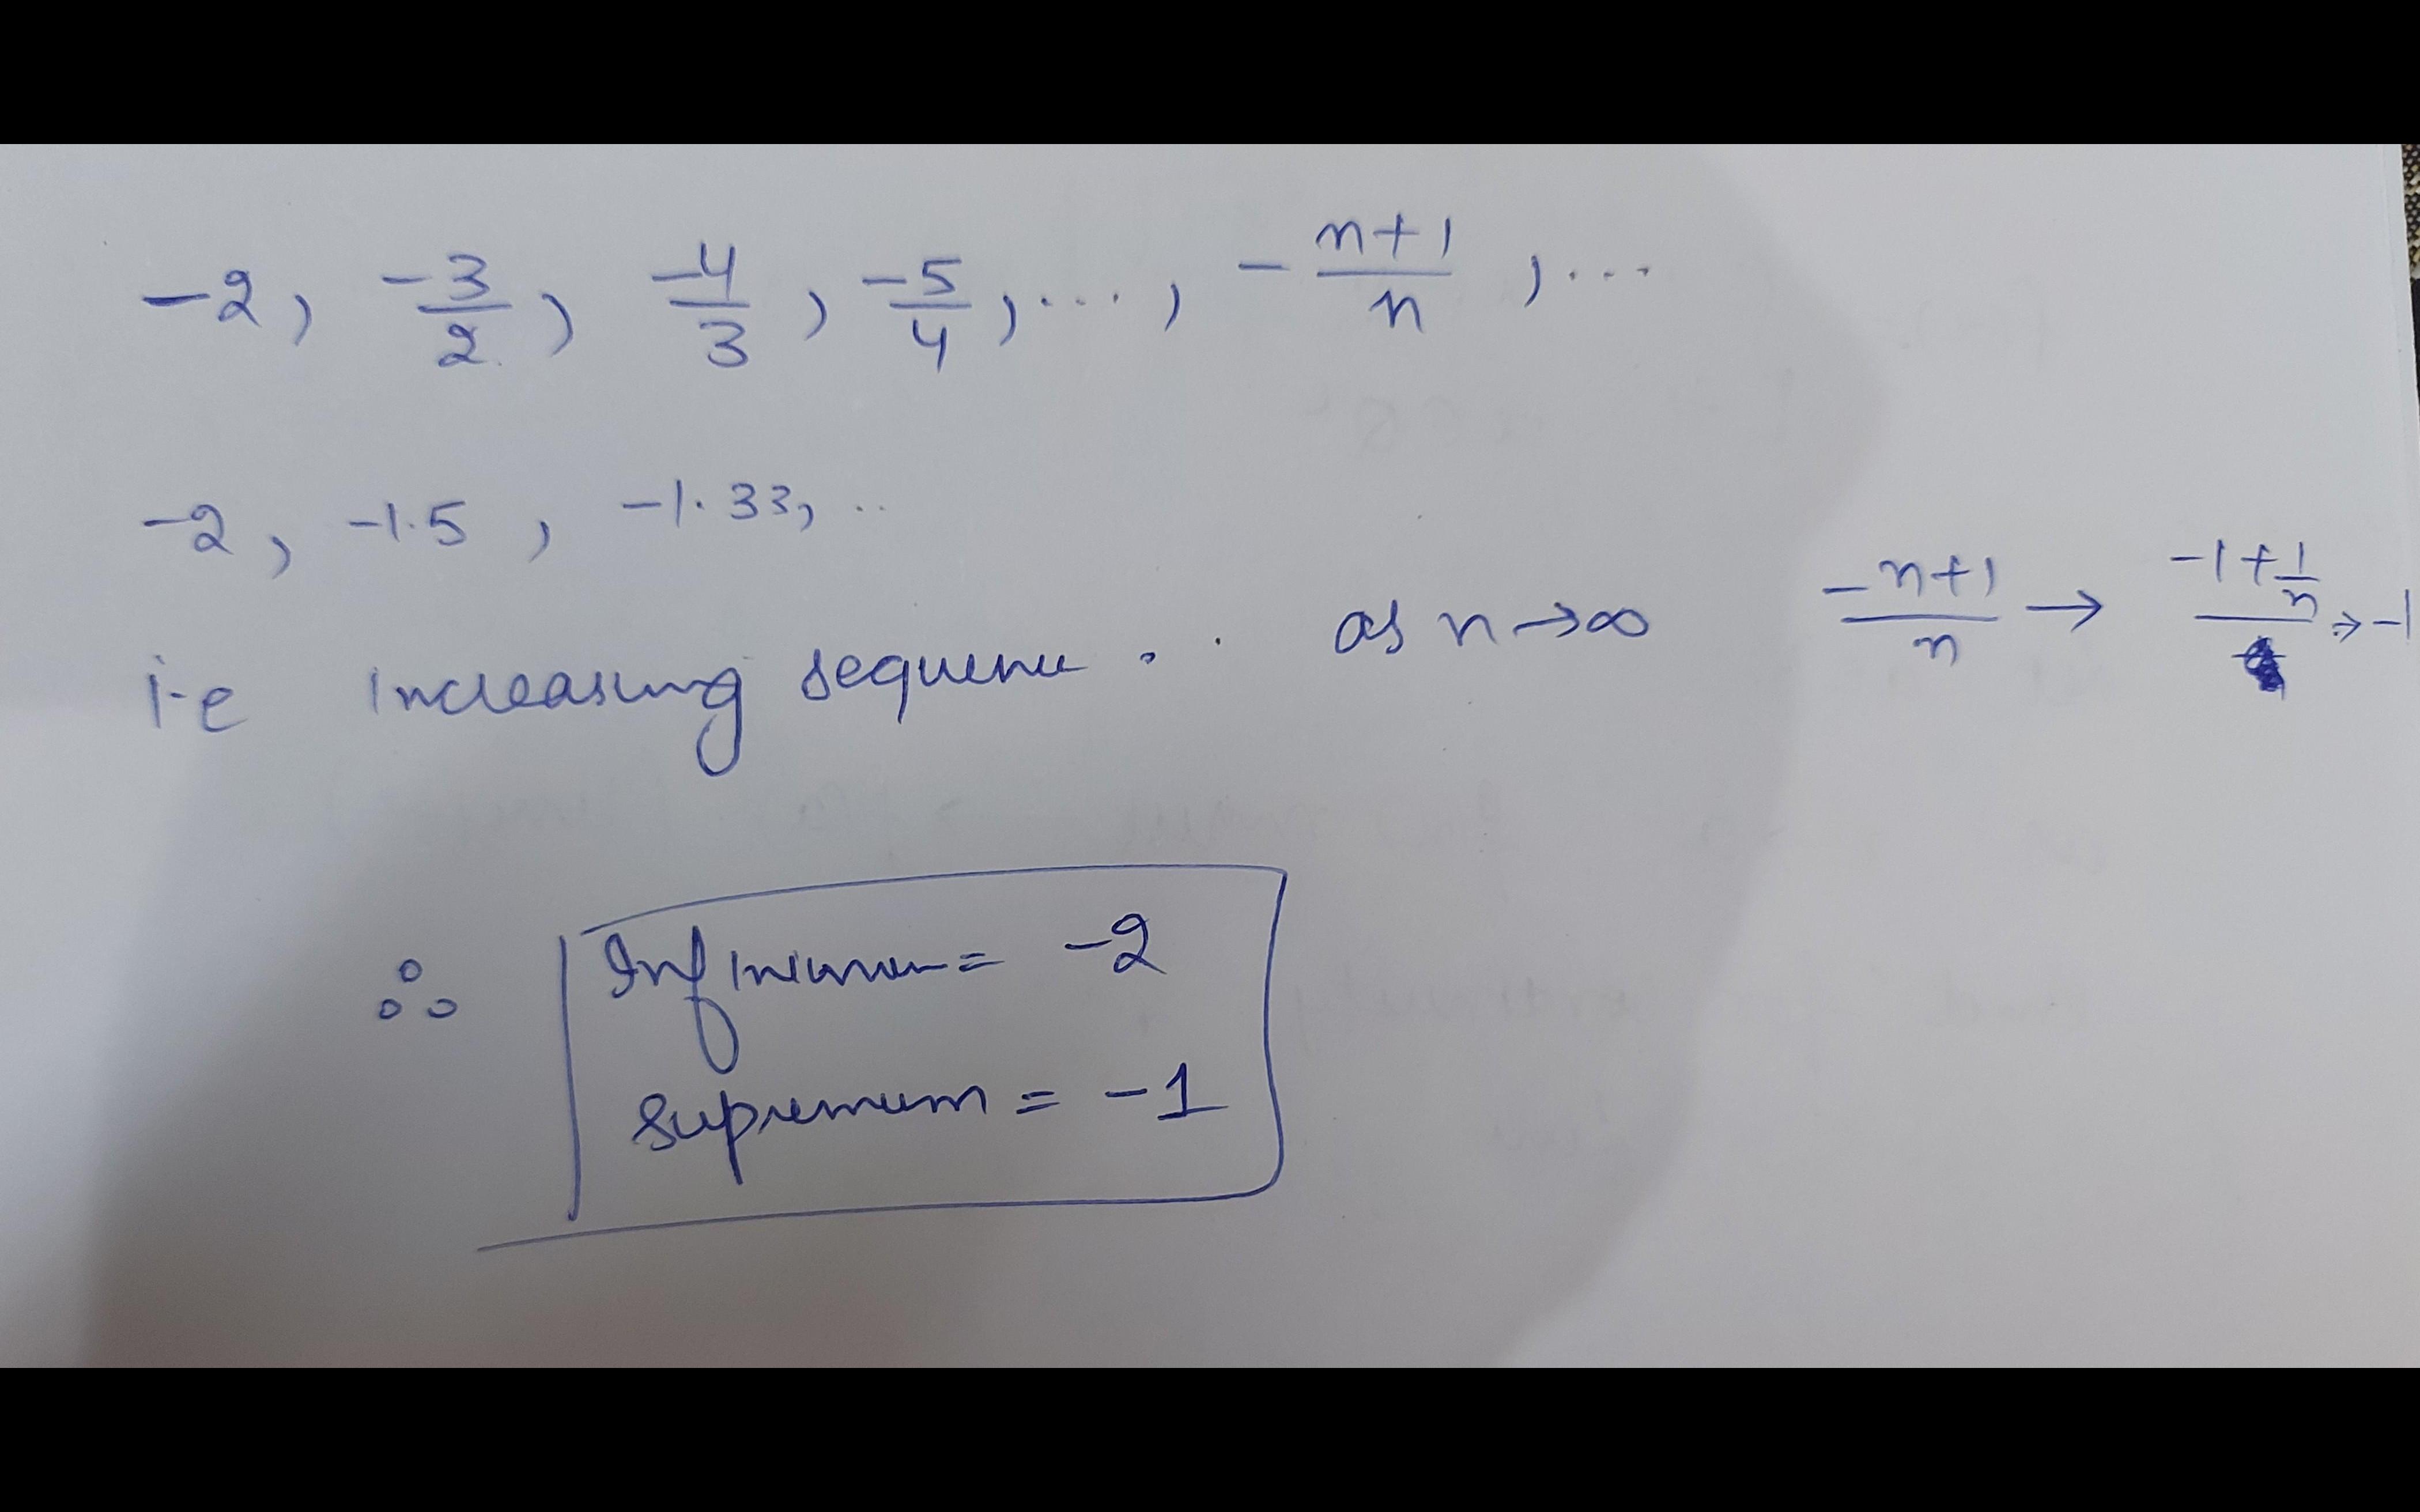 -2, -3/2, -4/3, -5/4, ..., - n+1/n, ...
-2, -1.5, -1.33, ..
i.e increasing sequence . . as n→∞ -n+1/n → -1+1/n ⇒ -1
∴ Infimum = -2
supremum = -1